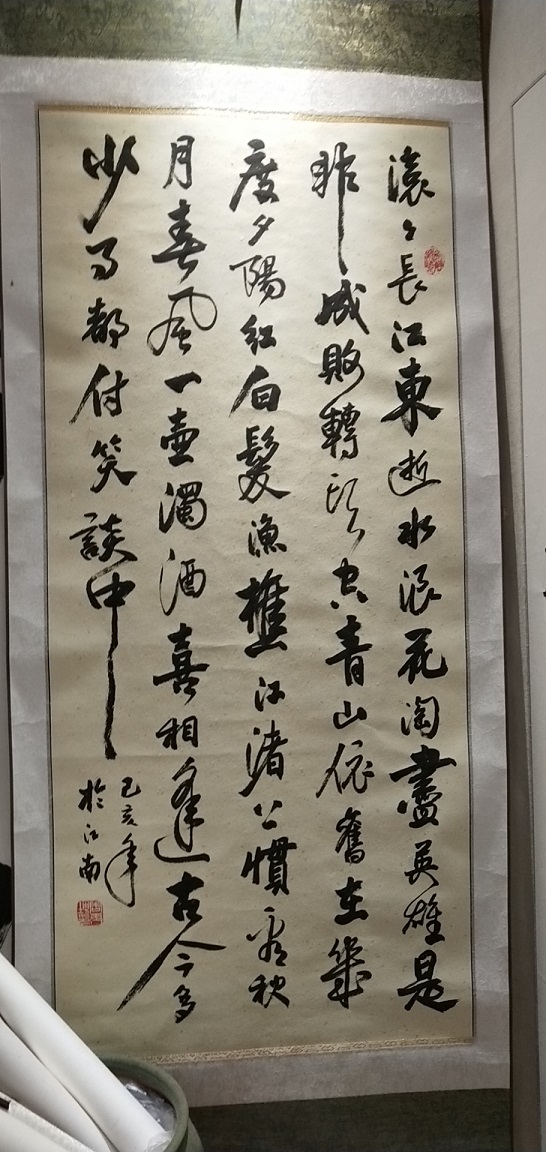 滚々長江東逝水浪花淘盡英雄是
非成敗轉頭空青山依舊在幾
度夕陽紅白髮漁樵江渚上慣看秋
月春風一壺濁酒喜相逢古今多
少事都付笑談中
己亥年
於江南